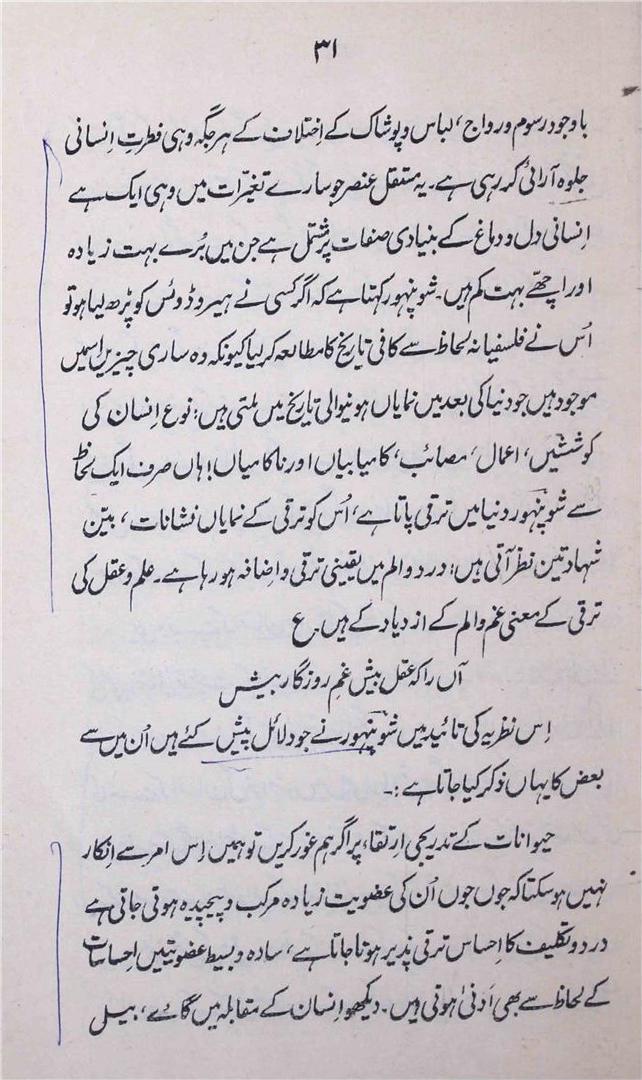 ۳۱
باوجود رسوم و رواج، لباس و پوشاک کے اختلاف کے ہر جگہ وہی فطرتِ اِنسانی
جلوہ آرائی کر رہی ہے۔ یہ مستقل عنصر جو سارے تغیّرات میں وہی ایک ہے
اِنسانی دل و دماغ کے بنیادی صفات پر مشتمل ہے جن میں بُرے بہت زیادہ
اور اچھّے بہت کم ہیں۔ شوپنہور کہتا ہے کہ اگر کسی نے ہیروڈوٹس کو پڑھ لیا ہو تو
اُس نے فلسفیانہ لحاظ سے کافی تاریخ کا مطالعہ کر لیا کیونکہ وہ ساری چیزیں اسمیں
موجود ہیں جو دنیا کی بعد میں نمایاں ہونیوالی تاریخ میں ملتی ہیں: نوع اِنسان کی
کوششیں، اعمال، مصائب، کامیابیاں اور ناکامیاں! ہاں صرف ایک لحاظ
سے شوپنہور دنیا میں ترقی پاتا ہے، اُس کو ترقی کے نمایاں نشانات، بیّن
شہادتیں نظر آتی ہیں: درد و الم میں یقینی ترقی و اِضافہ ہو رہا ہے۔ علم و عقل کی
ترقی کے معنی غم و الم کے ازدیاد کے ہیں۔ ع
آں را کہ عقل بیش غمِ روزگار بیش
اِس نظریہ کی تائید میں شوپنہور نے جو دلائل پیش کئے ہیں اُن میں سے
بعض کا یہاں ذکر کیا جاتا ہے:۔
حیوانات کے تدریجی اِرتقاء پر اگر ہم غور کریں تو ہمیں اِس امر سے اِنکار
نہیں ہو سکتا کہ جوں جوں اُن کی عضویت زیادہ مرکب و پیچیدہ ہوتی جاتی ہے
درد و تکلیف کا اِحساس ترقی پذیر ہوتا جاتا ہے، سادہ و بسیط عضویتیں اِحساسات
کے لحاظ سے بھی اَدنیٰ ہوتی ہیں۔ دیکھو اِنسان کے مقابلہ میں گائے، بیل